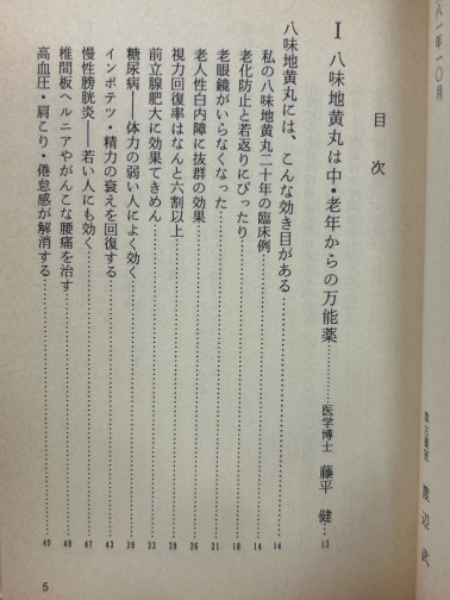 八一年一〇月
渡辺 武
目次
Ⅰ 八味地黄丸は中・老年からの万能薬……… 医学博士 藤平 健…13
八味地黄丸には、こんな効き目がある……14
私の八味地黄丸二十年の臨床例……14
老化防止と若返りにぴったり……18
老眼鏡がいらなくなった……21
老人性白内障に抜群の効果……26
視力回復率はなんと六割以上……28
前立腺肥大に効果てきめん……33
糖尿病――体力の弱い人によく効く……39
インポテツ・精力の衰えを回復する……43
慢性膀胱炎――若い人にも効く……47
椎間板ヘルニアやがんこな腰痛を治す……48
高血圧・肩こり・倦怠感が解消する……49
5